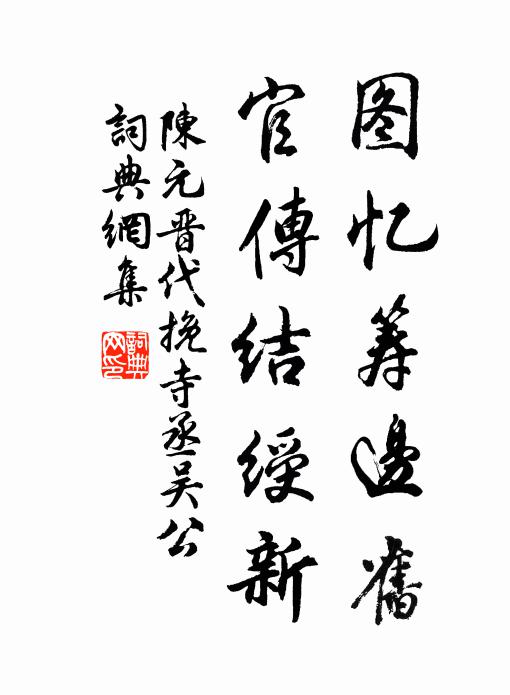 图忆筹邊舊
官傳結綬新
陳元晋代挽寺丞吴公
詞典網集
詞典網印